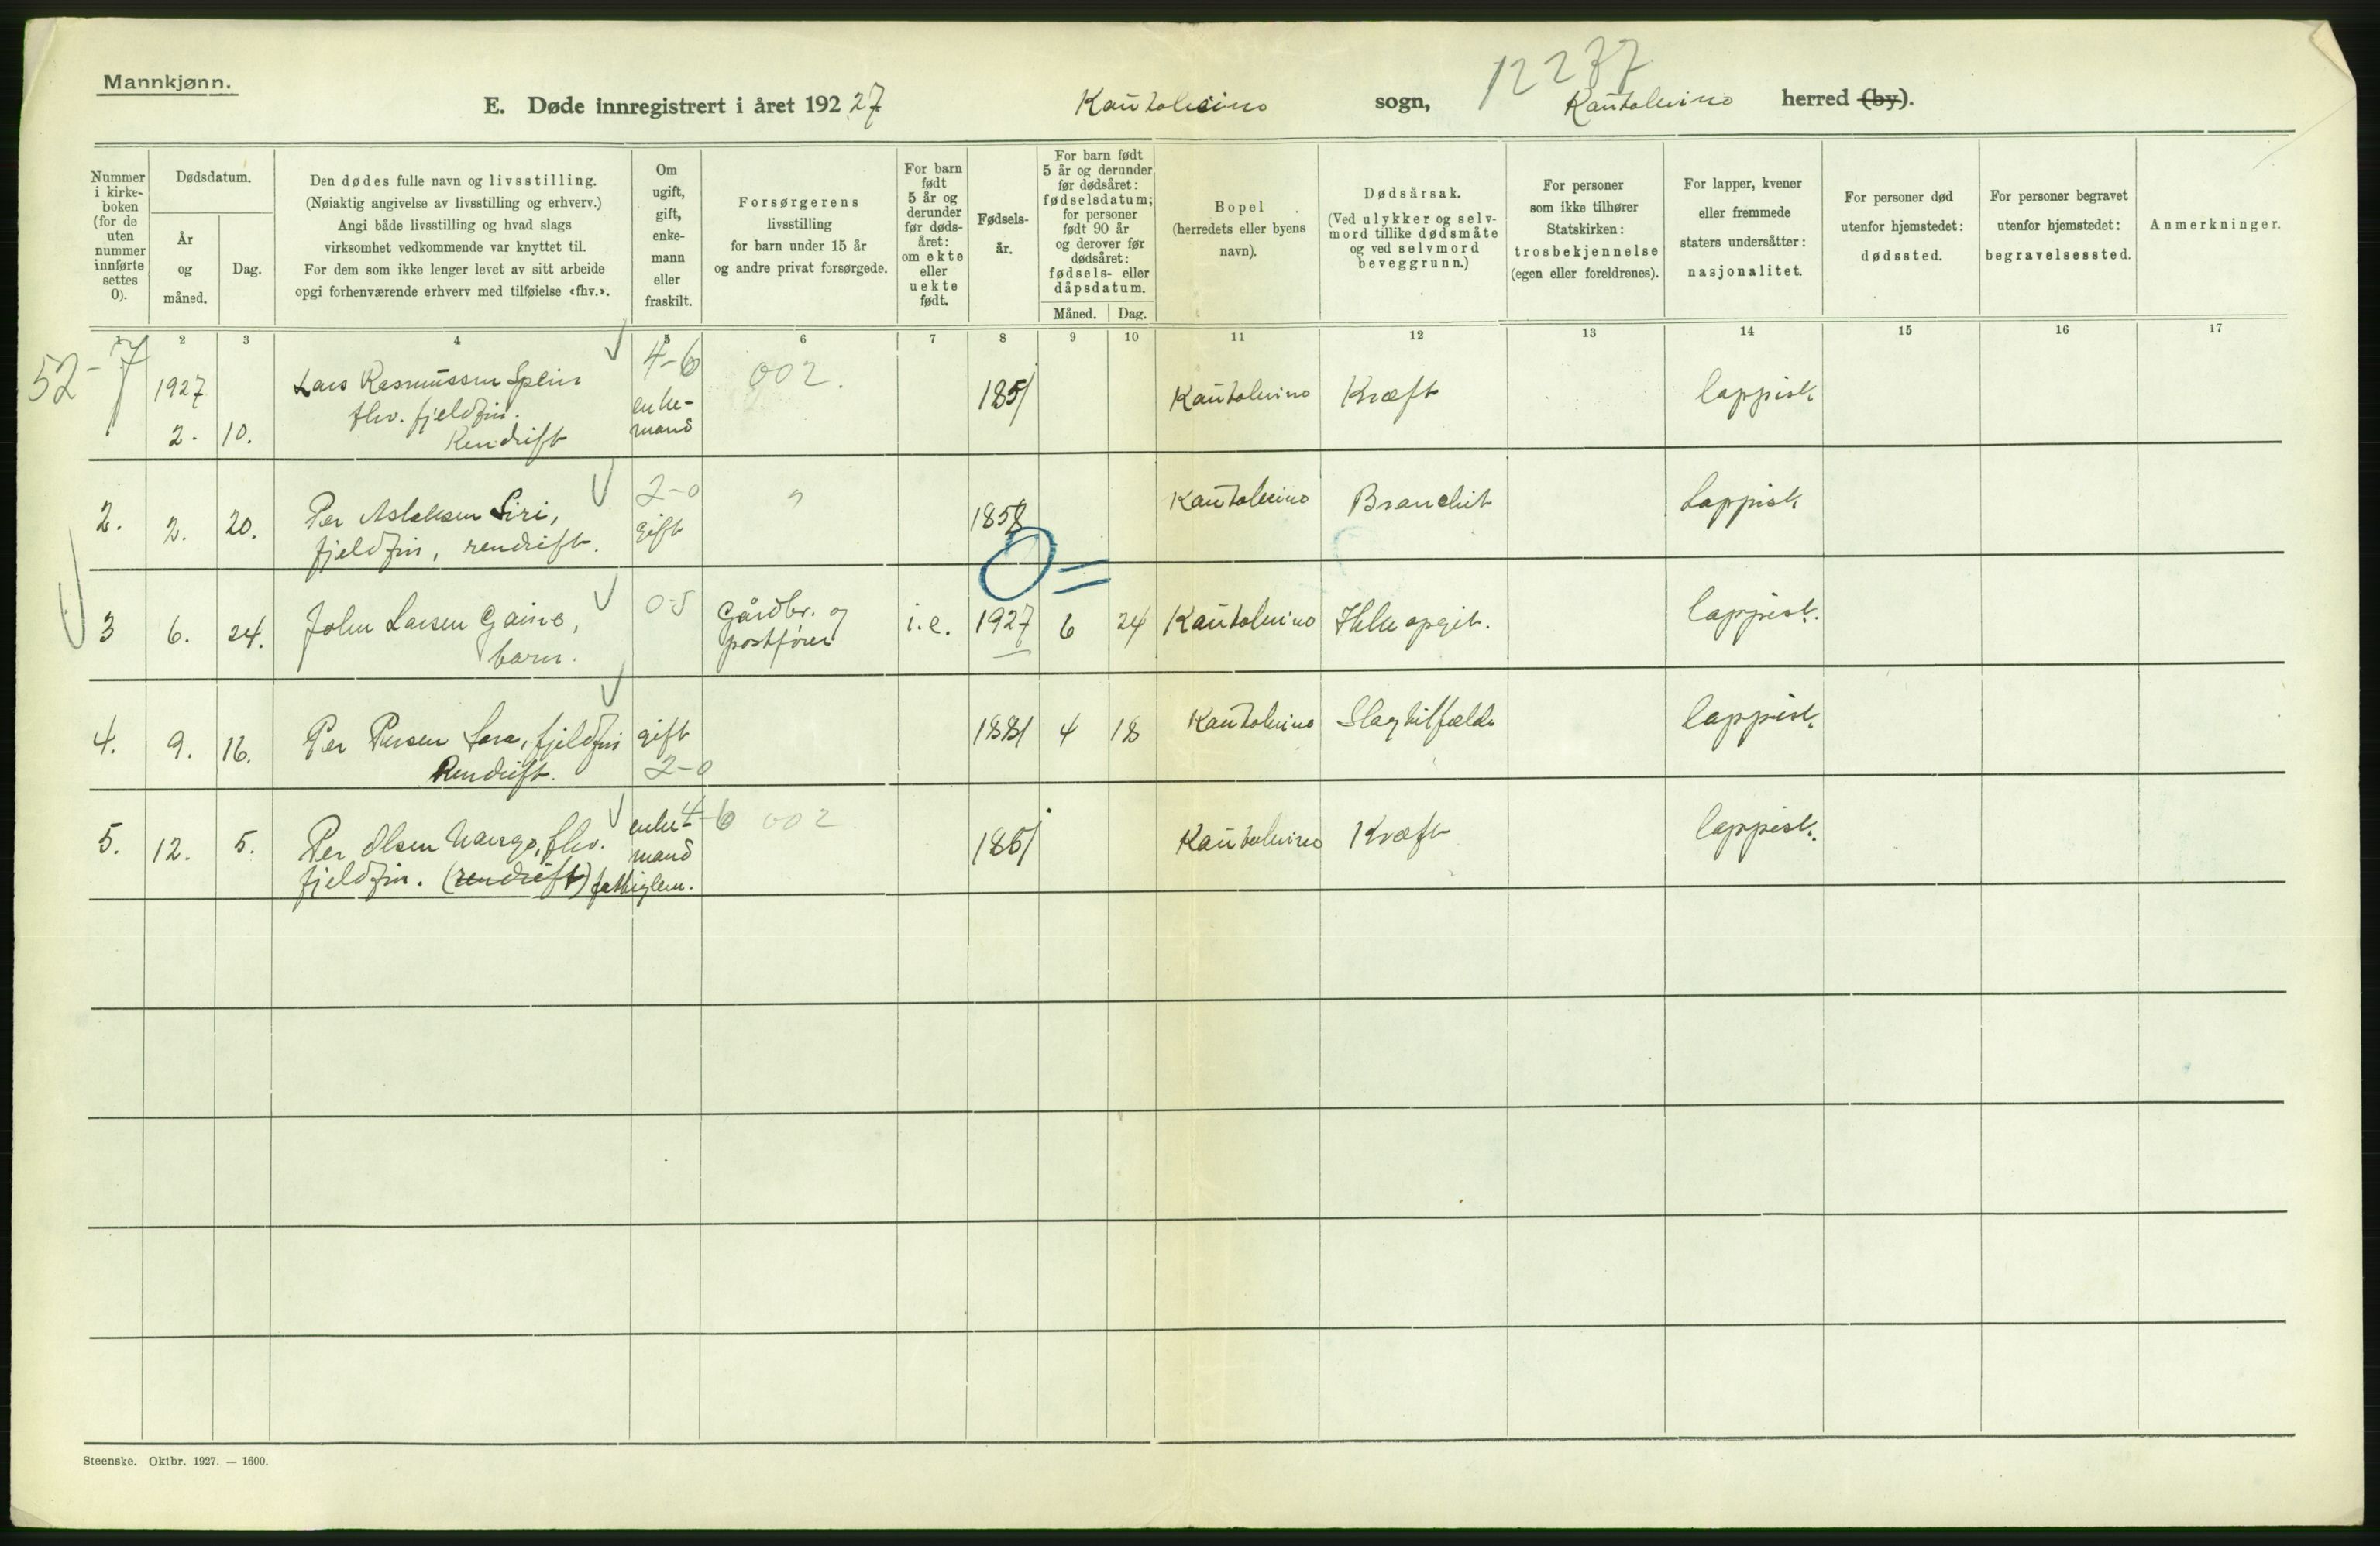 Mannkjønn.
12237
E. Døde innregistrert i året 192 27 Kautokeino sogn, Kautokeino herred (by).
Nummer i kirke-boken (for de uten nummer innførte settes 0).
Dødsdatum.
År og måned.
Dag.
Den dødes fulle navn og livsstilling.
(Nøiaktig angivelse av livsstilling og erhverv.)
Angi både livsstilling og hvad slags
virksomhet vedkommende var knyttet til.
For dem som ikke lenger levet av sitt arbeide
opgi forhenværende erhverv med tilføielse «fhv.».
Om ugift, gift, enke-mann eller fraskilt.
Forsørgerens
livsstilling
for barn under 15 år
og andre privat forsørgede.
For barn født 5 år og derunder før døds-året: om ekte eller uekte født.
Fødsels-år.
For barn født
5 år og derunder
før dødsåret:
fødselsdatum;
for personer
født 90 år
og derover før
dødsåret:
fødsels- eller
dåpsdatum.
Måned. Dag.
Bopel
(herredets eller byens
navn).
Dødsårsak.
(Ved ulykker og selv-
mord tillike dødsmåte
og ved selvmord
beveggrunn.)
For personer
som ikke tilhører
Statskirken:
trosbekjennelse
(egen eller foreldrenes).
For lapper, kvener
eller fremmede
staters undersåtter:
nasjonalitet.
For personer død
utenfor hjemstedet:
dødssted.
For personer begravet
utenfor hjemstedet:
begravelsessted.
Anmerkninger.
1 2 3 4 5 6 7 8 9 10 11 12 13 14 15 16 17
52-7
1927 2. 10. Lars Rasmussen Spein
fhv. fjeldfin.
Rendrift
4-6
enke-
mand
002.
1851 Kautokeino Kræft lappisk
2. 2. 20. Per Aslaksen Siri,
fjeldfin, rendrift.
2-0
gift
" 1858 Kautokeino Bronchit Lappisk
0=
3 6. 24. John Larsen Gaino,
barn.
0-5
Gårdbr. og
postfører
i.e. 1927 6 24 Kautokeino Ikke opgit. lappisk.
4. 9. 16. Per Persen Sara, fjeldfin
Rendrift.
gift
2-0
1881 4 18 Kautokeino Slagtilfælde lappisk.
5. 12. 5. Per Olsen Vango, fhv.
fjeldfin. (rendrift) fattiglem.
enke-
mand
4-6 002
1861 Kautokeino Kræft lappisk.
Steenske. Oktbr. 1927. — 1600.